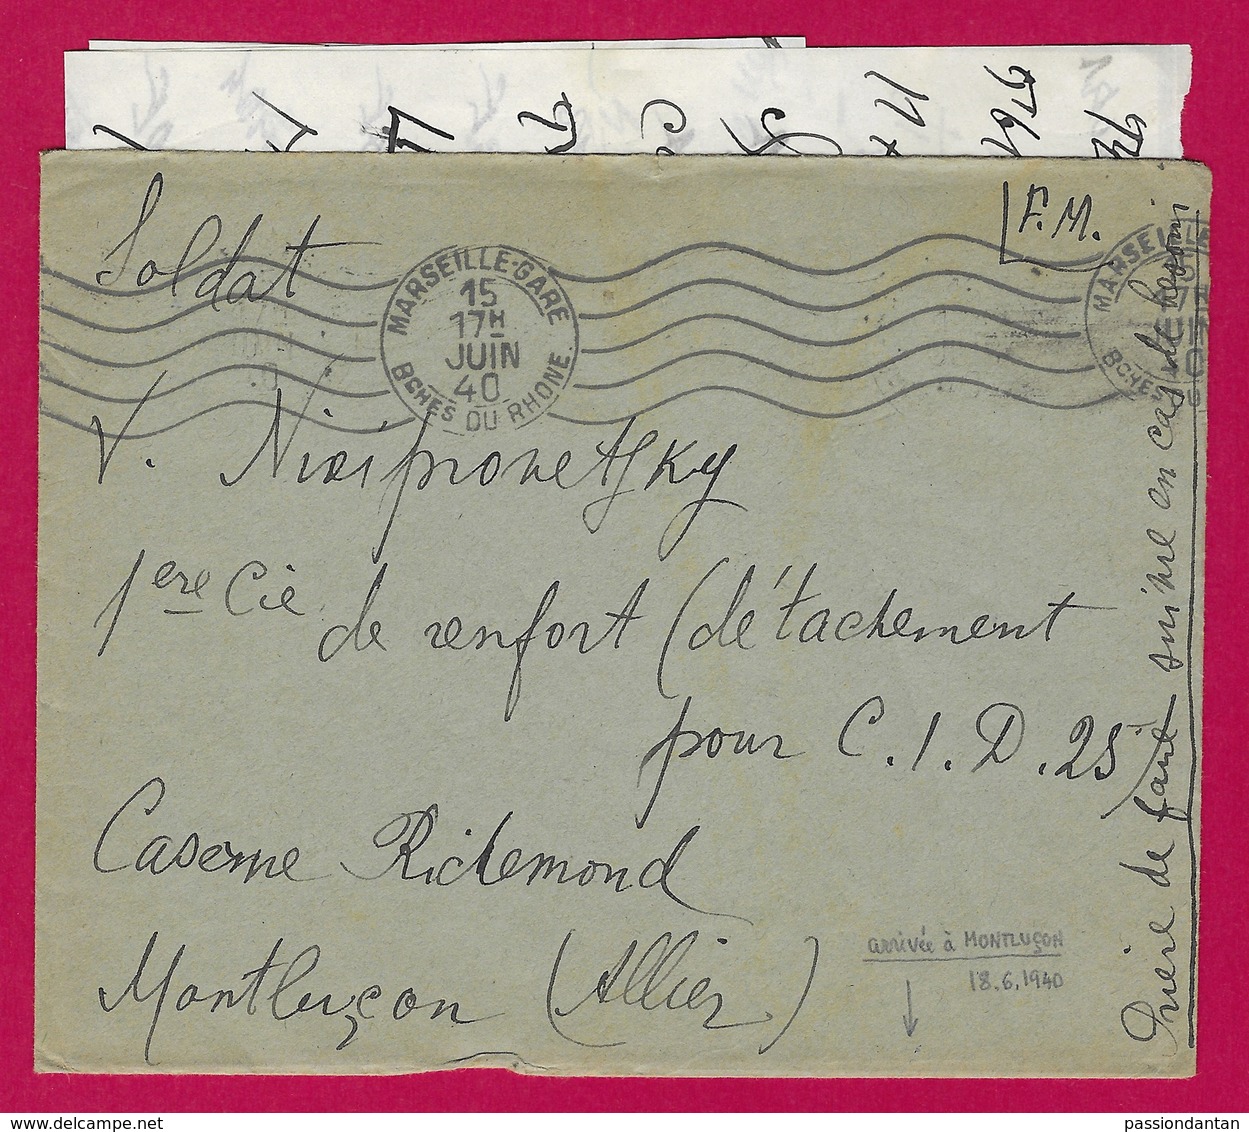 F.M.
Soldat
MARSEILLE-GARE
15
17H
JUIN
40
BCHES DU RHONE
MARSEILLE
V. Niviprovetsky
1ere Cie de renfort (détachement
pour C.I.D. 25)
Caserne Richemond
Montluçon (Allier)
Prière de faire suivre en cas de besoin
arrivée à MONTLUÇON
18.6.1940
passiondantan